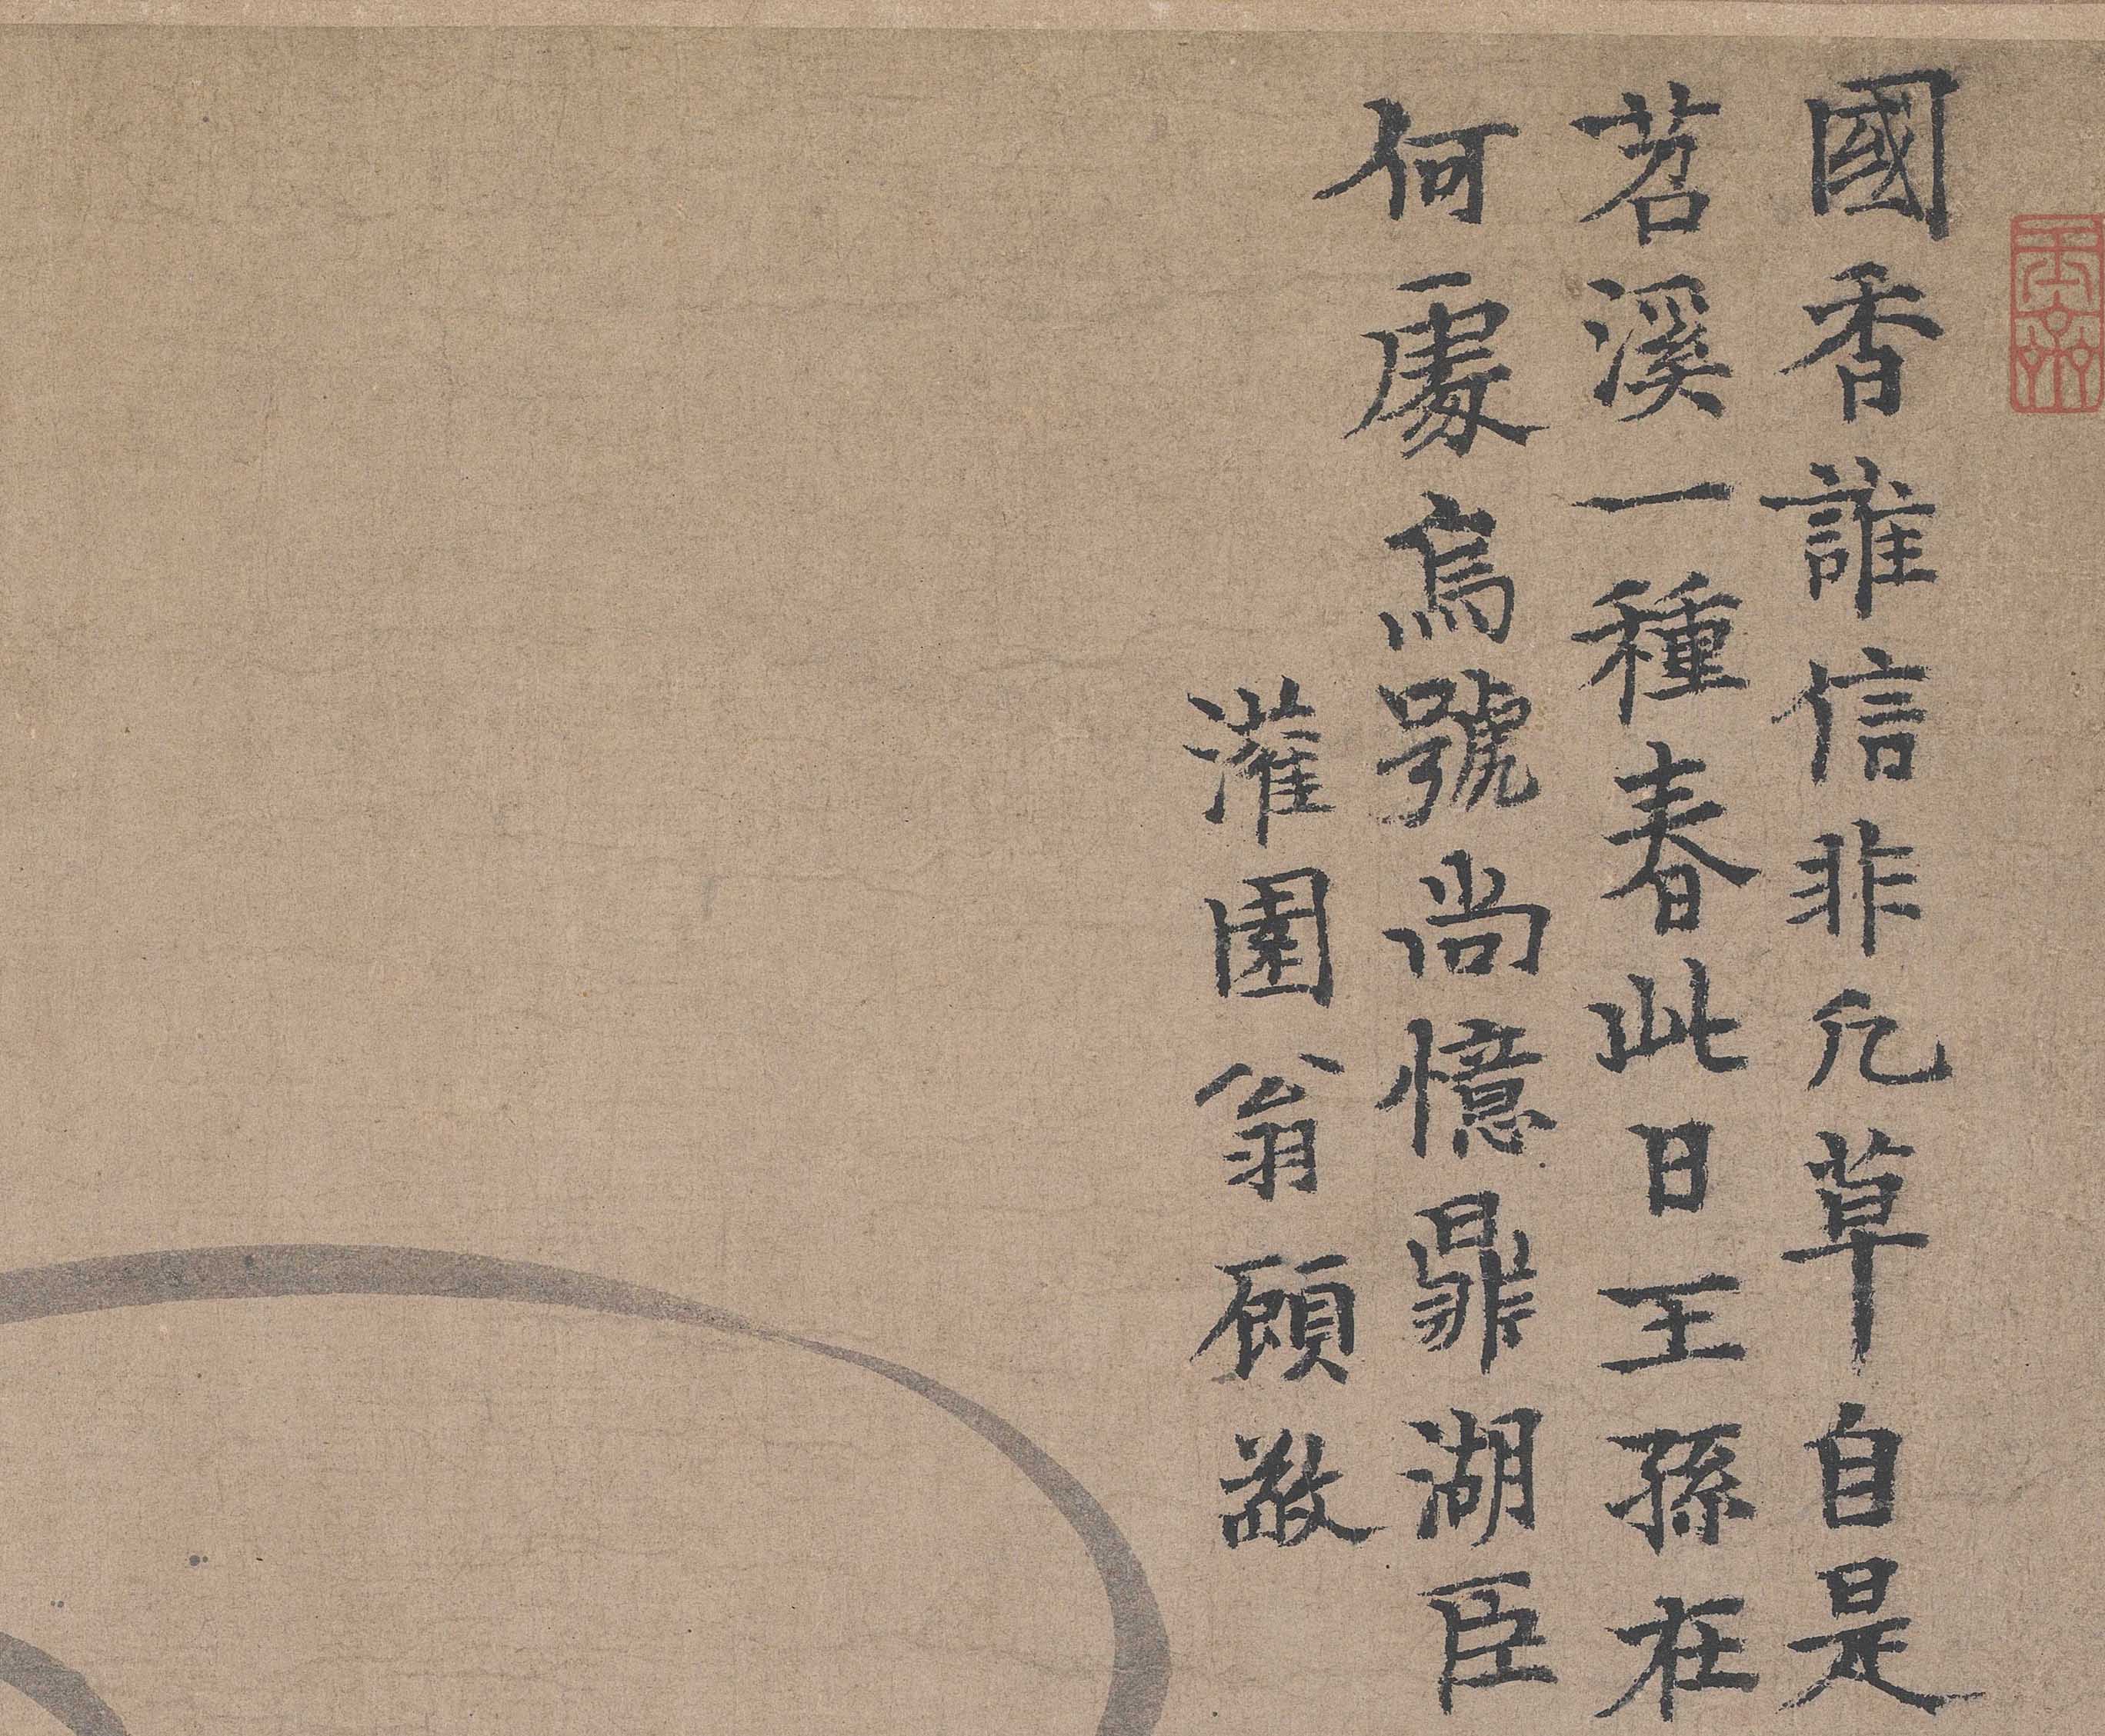 國香誰信非凢草自是
苕溪一種春此日王孫在
何處烏號尚憶鼎湖臣
灌園翁顧敬